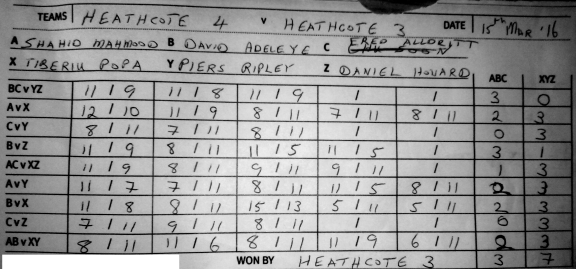 TEAMS HEATHCOTE 4 V HEATHCOTE 3 DATE 15th MAR '16
A SHAHID MAHMOOD B DAVID ADELEYE C
X TIBERIU POPA Y PIERS RIPLEY Z DANIEL HOWARD ABC XYZ
BC v YZ 11 / 9 11 / 8 11 / 9 / / 3 0
A v X 12 / 10 11 / 9 8 / 11 7 / 11 8 / 11 2 3
C v Y 8 / 11 7 / 11 8 / 11 / / 0 3
B v Z 11 / 9 8 / 11 11 / 5 11 / 5 / 3 1
AC v XZ 11 / 9 8 / 11 9 / 11 9 / 11 / 1 3
A v Y 11 / 7 7 / 11 8 / 11 11 / 5 8 / 11 2 3
B v X 11 / 8 8 / 11 15 / 13 5 / 11 5 / 11 2 3
C v Z 7 / 11 9 / 11 8 / 11 / / 0 3
AB v XY 8 / 11 11 / 6 8 / 11 11 / 9 6 / 11 2 3
WON BY HEATHCOTE 3 3 7